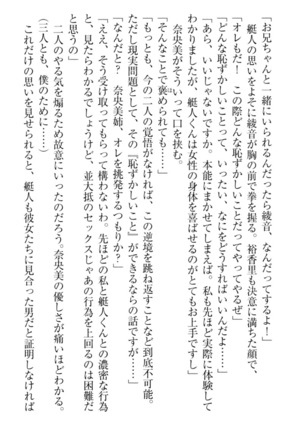 「お兄ちゃんと一緒にいられるのだったら綾音、
艇人の思いをよそに綾音が胸の前で拳を握る。裕香里も決意に満ちた顔で、
「オレもだ！　この際どんな恥ずかしいことだってやってやるぜ」
「どんな恥ずかしいことって、いったい、なにをどうすればいいんだよ……」
「あら、いいじゃないですか。本能にまかせてしまえば。私も先ほど実際に体験して
わかりましたが、艇人くんは女性の身体を喜ばせるのがとてもお上手ですし」
奈央美がそういって口を挟む。
「そんなことで褒められても……」
「もっとも、今の二人の覚悟がなければ、この逆境を跳ね返すことなど到底不可能。
ただし現実問題として、その『恥ずかしいこと』ができるならの話ですが……」
「なんだと？　奈央美姉、オレを挑発するつもりか？」
「ええ、そう受け取ってもらって構わないわ。先ほどの私と艇人くんとの濃密な行為
を、見たらわかるでしょうけど、並大抵のセックスじゃあの行為を上回るのは困難だ
と思うの」
二人のやる気を煽るため故意にいったのだろう。奈央美の優しさが痛いほどわかる。
（三人とも、僕のために……）
これだけの思いを見せられると、艇人も彼女たちに見合った男だと証明しなければ